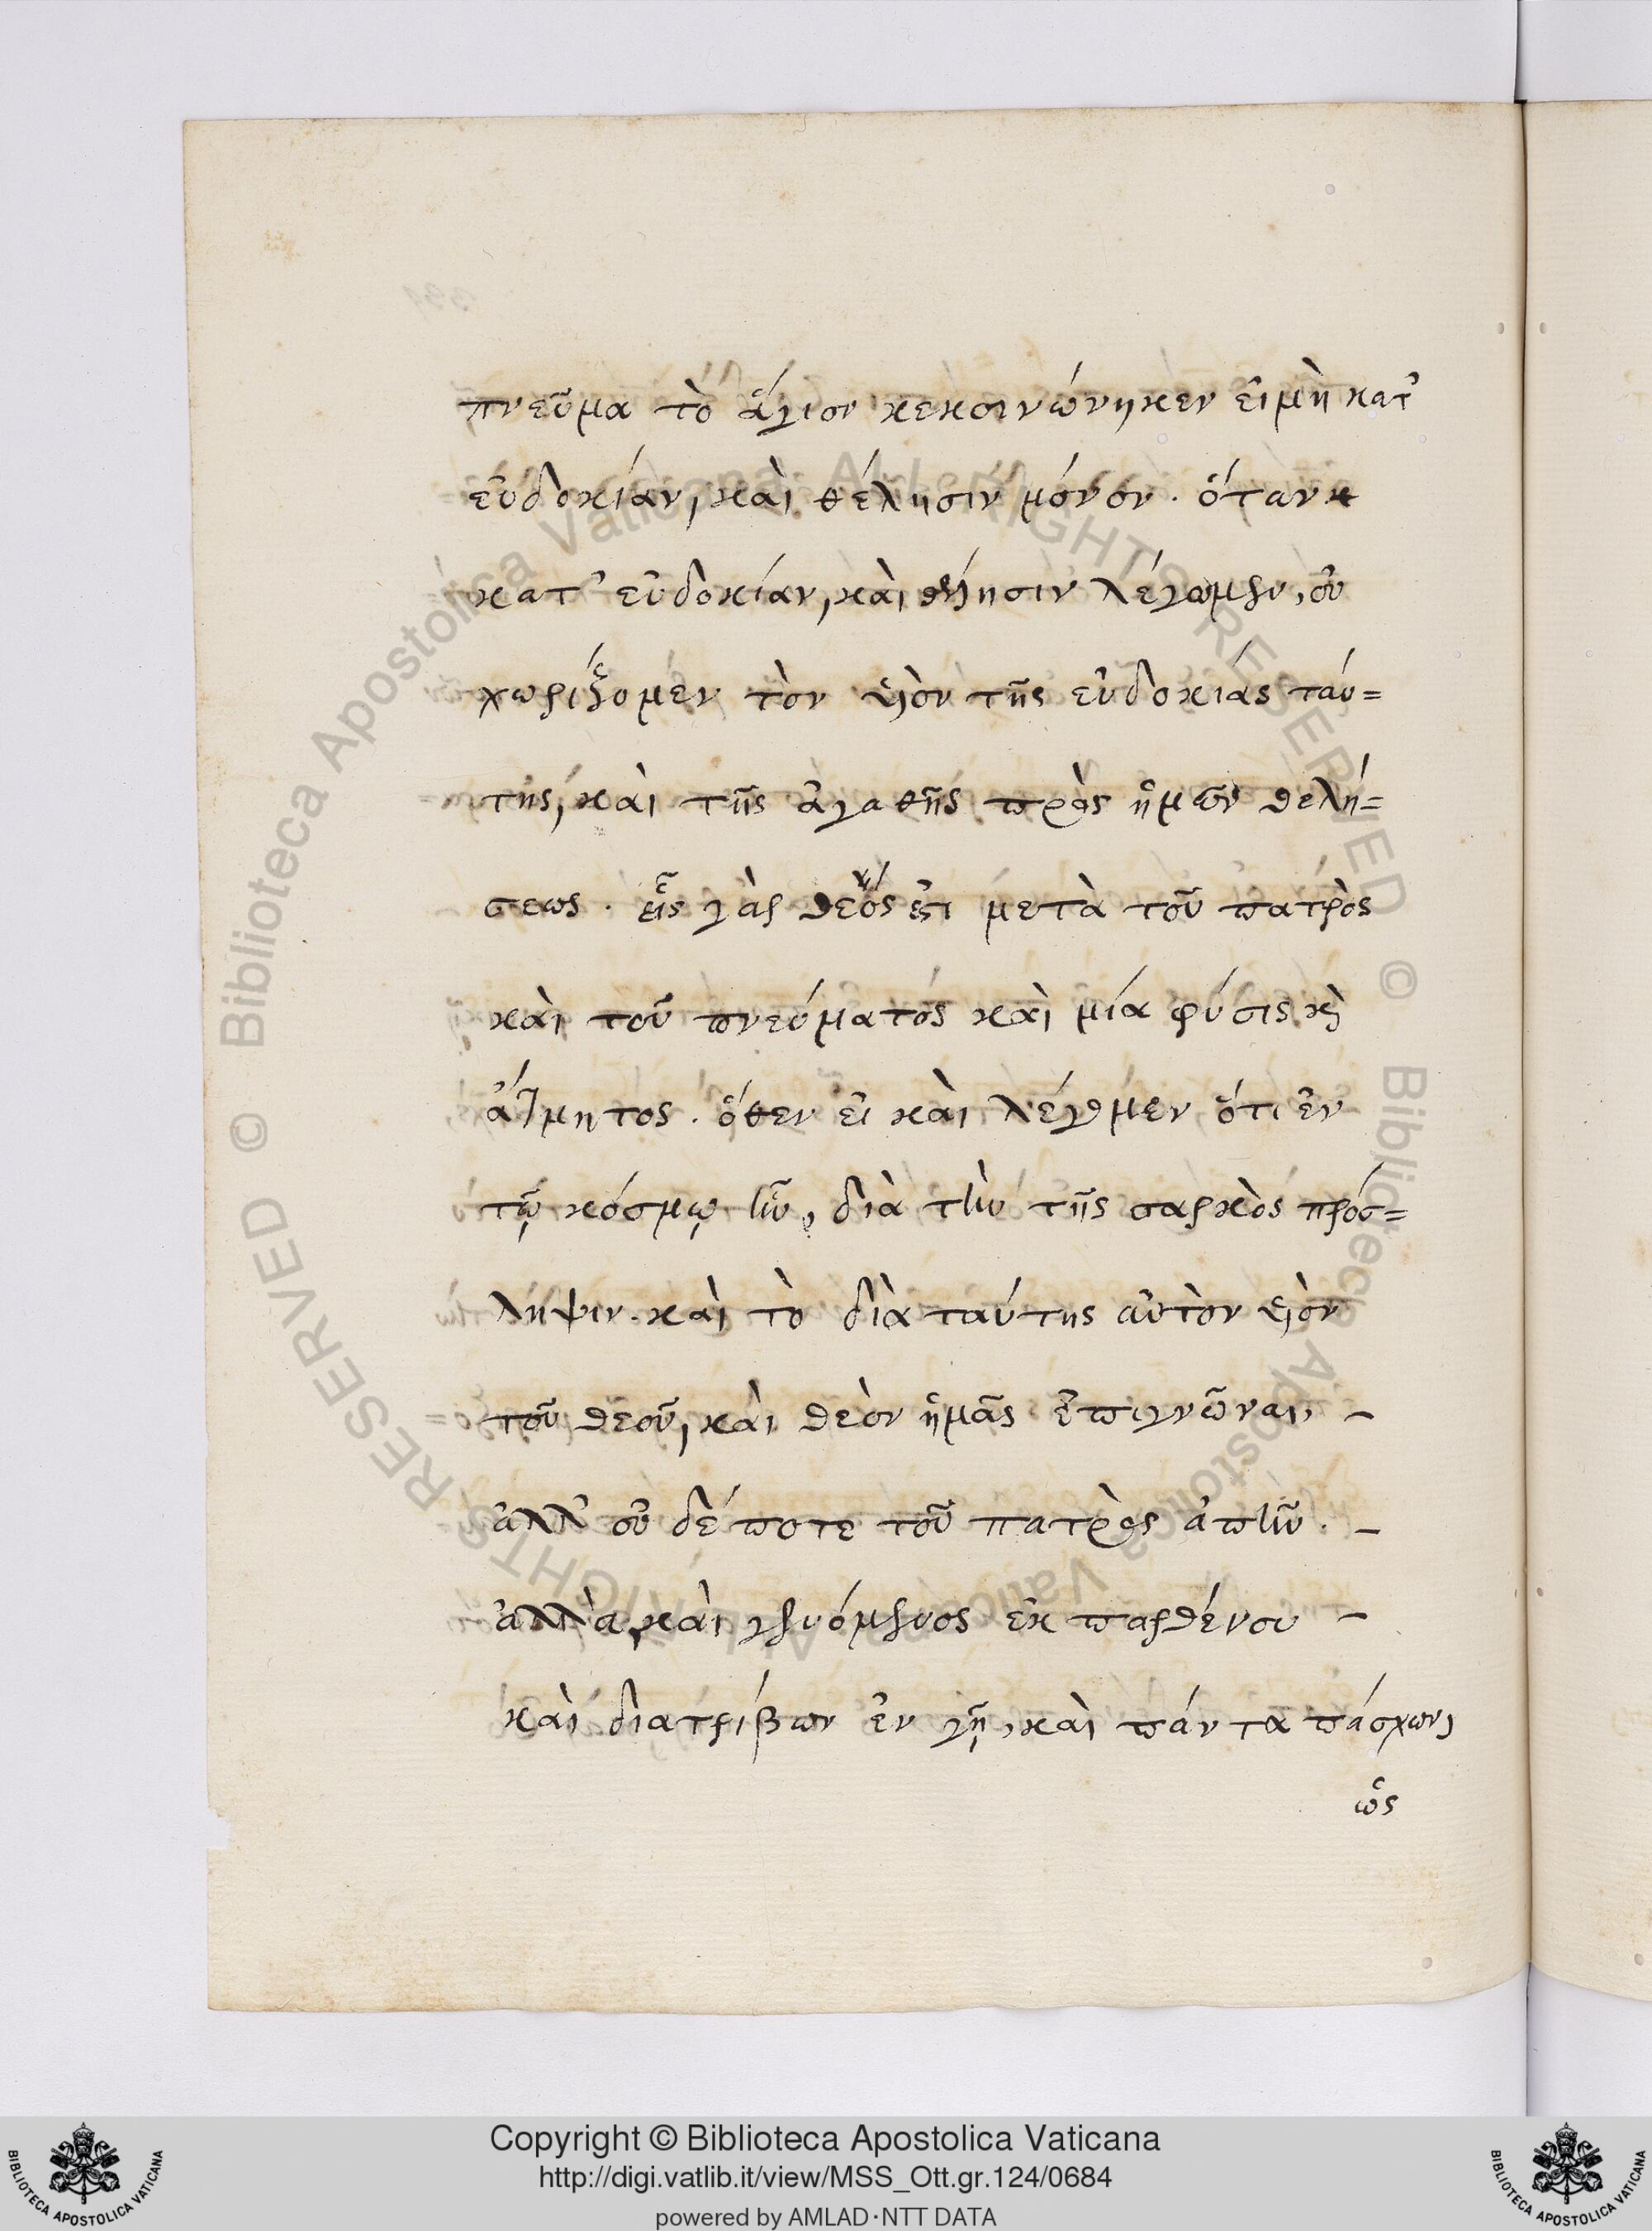 πνεῦμα τὸ ἅγιον κεκοινώνηκεν εἰμὴ κατ᾽
εὐδοκίαν, καὶ θέλησιν μόνον. ὅταν
κατ᾽ εὐδοκίαν, καὶ θέλησιν λέγωμεν, οὐ
χωρίζομεν τὸν υἱὸν τῆς εὐδοκίας ταύ=
της, καὶ τῆς ἀγαθῆς πρὸς ἡμῶν θελή=
σεως. εἷς γὰρ θεός ἐστι μετὰ τοῦ πατρὸς
καὶ τοῦ πνεύματος καὶ μία φύσις καὶ
ἄτμητος. ὅθεν εἰ καὶ λέγομεν ὅτι ἐν
τῷ κόσμῳ ἦν, διὰ τὴν τῆς σαρκὸς πρόσ=
ληψιν. καὶ τὸ διὰ ταύτης αὐτὸν υἱὸν
τοῦ θεοῦ, καὶ θεὸν ἡμᾶς ἐπιγνῶναι, –
ἀλλ᾽ οὐ δέποτε τοῦ πατρὸς ἀπῆν. –
ἀλλὰ, καὶ γενόμενος ἐκ παρθένου –
καὶ διατρίβων ἐν γῇ, καὶ πάντα πάσχων,
ὡς
Copyright © Biblioteca Apostolica Vaticana
http://digi.vatlib.it/view/MSS_Ott.gr.124/0684
powered by AMLAD·NTT DATA